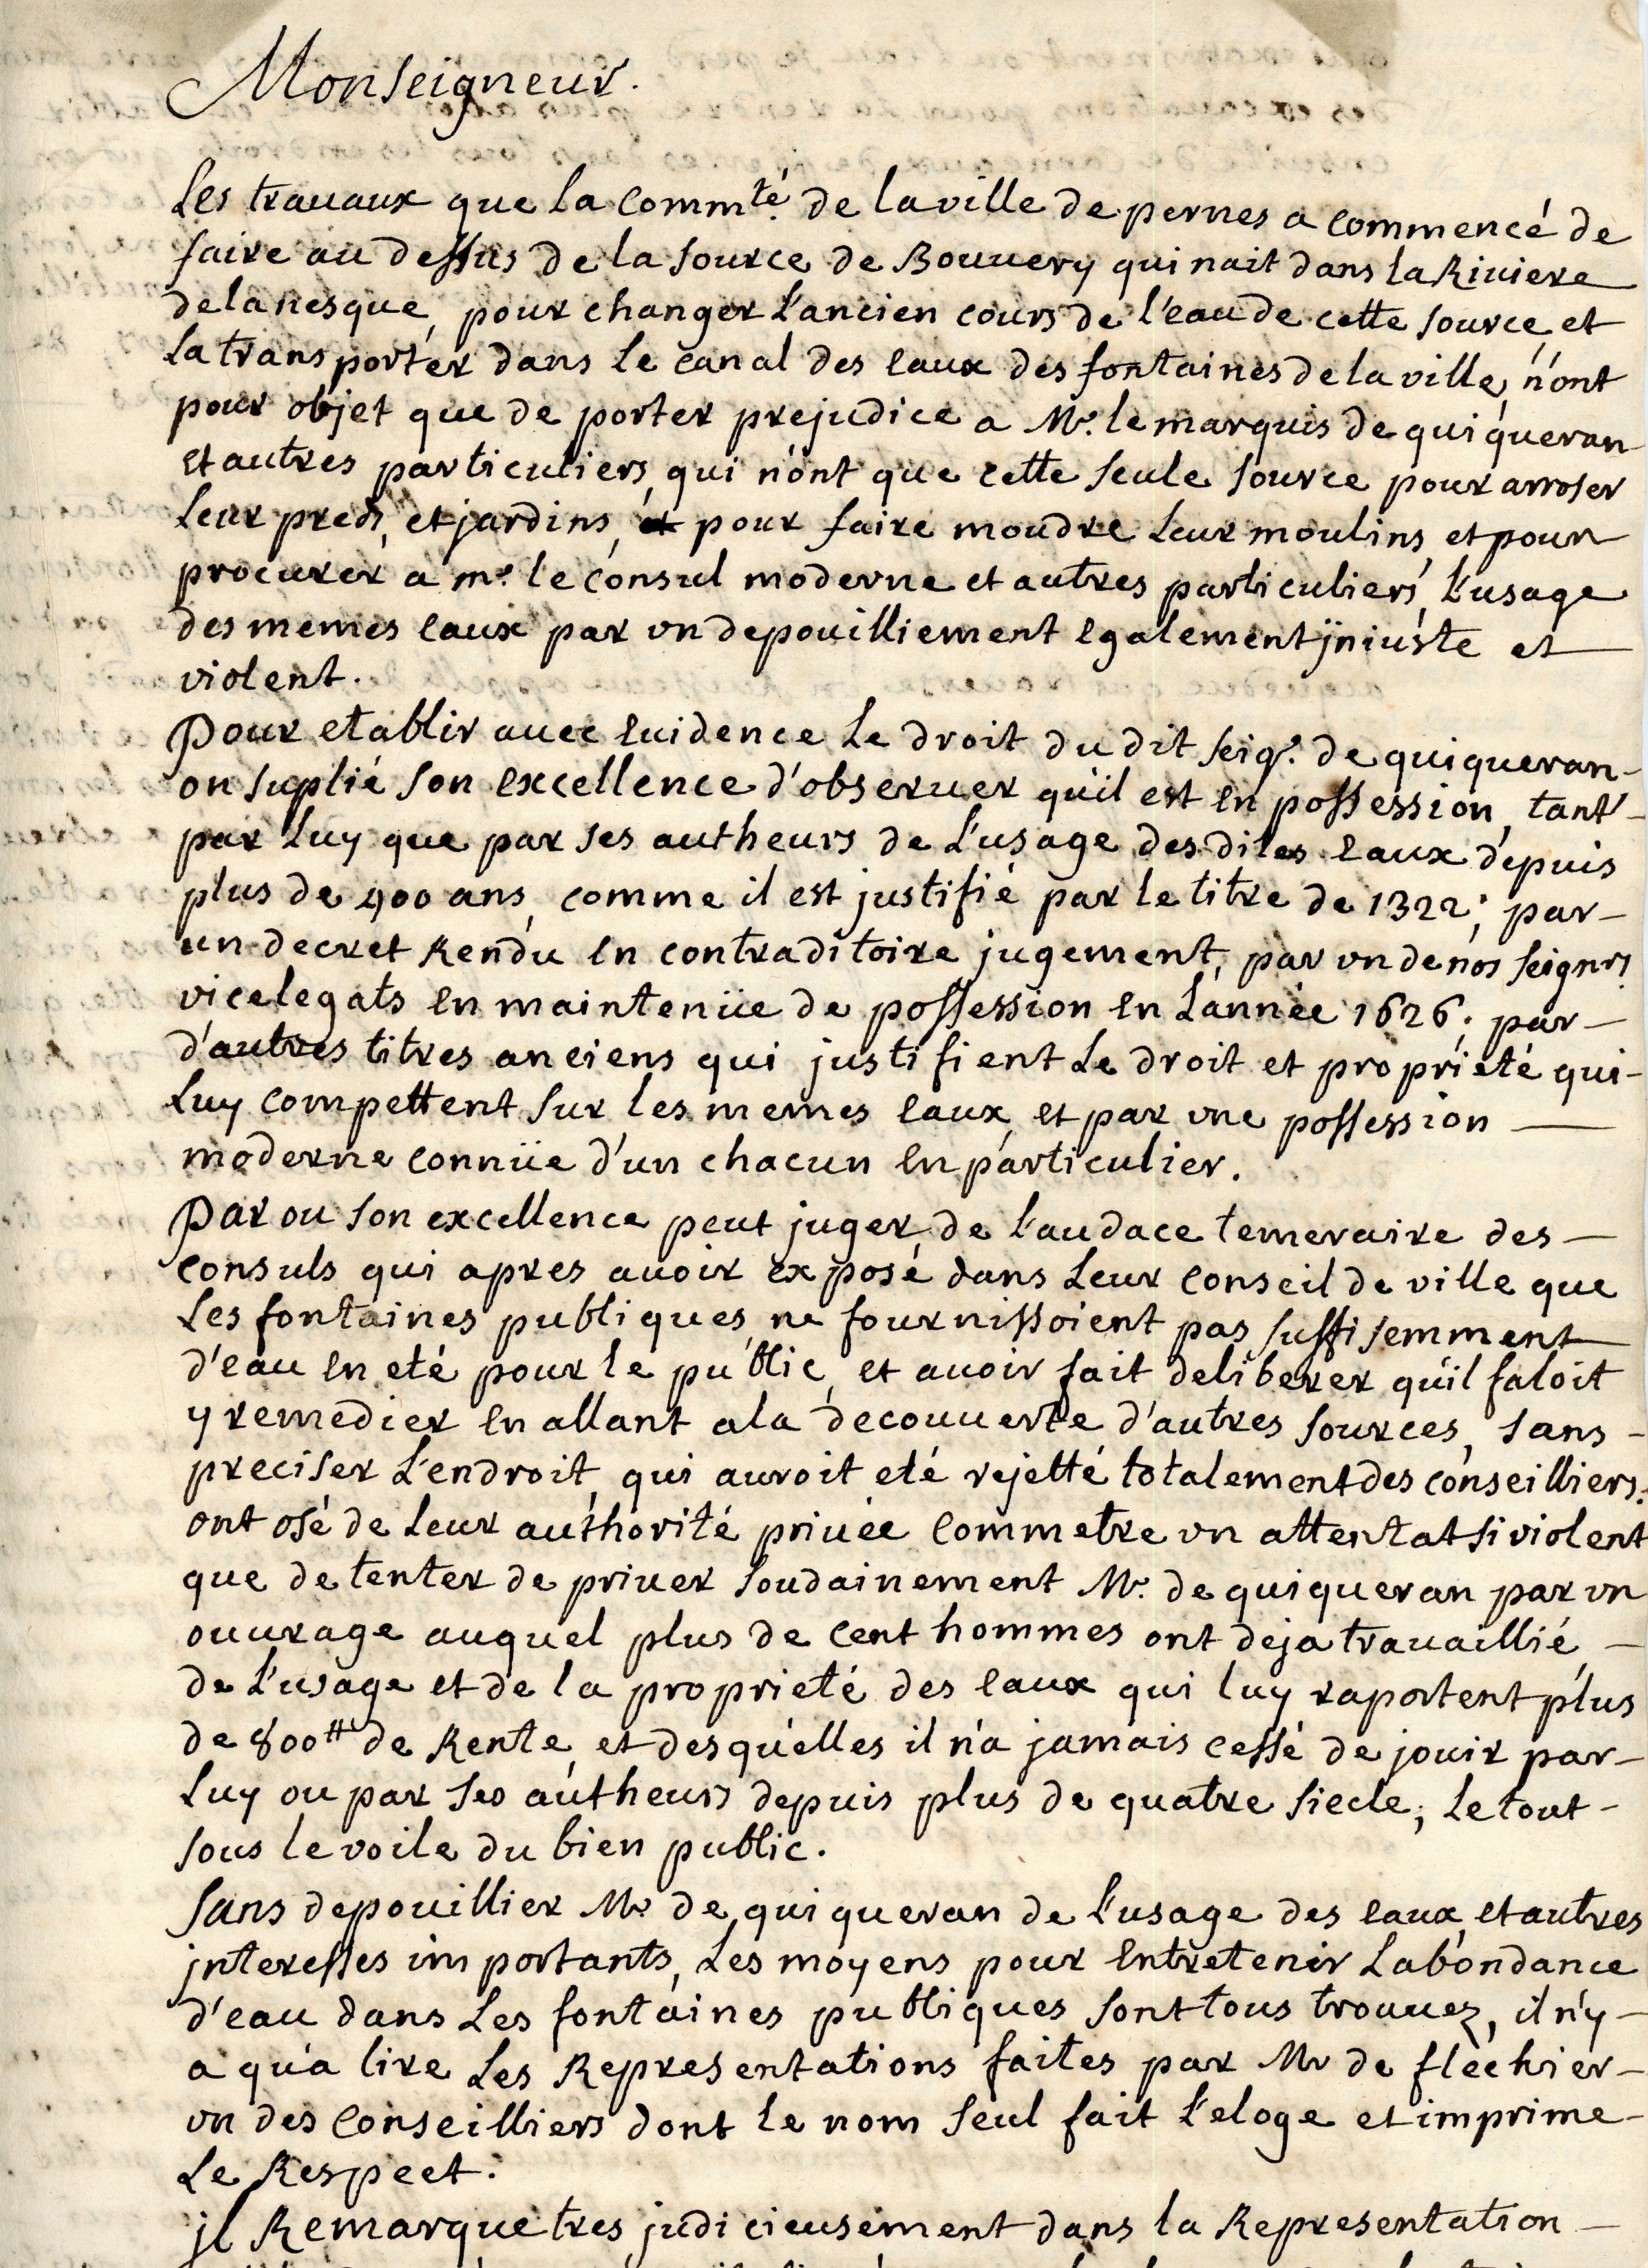 Monseigneur.
Les trauaux que la comm.té de la ville de pernes a commencé de
faire au dessus de la source de Bouuery qui nait dans la Riuiere
de la nesque, pour changer l'ancien cours de l'eau de cette source, et
la transporter dans le canal des eaux des fontaines de la ville, n'ont
pour objet que de porter prejudice a Mr. le marquis de quiqueran
et autres particuliers, qui n'ont que cette seule source pour arroser
leur preds, et jardins, et pour faire moudre leur moulins, et pour
procurer a mr. le consul moderne et autres particuliers, l'usage
des memes eaux par vn depouilliement egalement jniuste et
violent.
Pour etablir auec euidence le droit du dit seigr. de quiqueran
on suplie son excellence d'obseruer qu'il est en possession, tant
par luy que par ses autheurs de l'usage des dites eaux depuis
plus de 400 ans, comme il est justifié par le titre de 1322; par
un decret Rendu en contraditoire jugement, par vn de nos seignrs.
vicelegats en maintenüe de possession en lannée 1626; par
d'autres titres anciens qui justifient le droit et proprieté qui
luy compettent sur les memes eaux, et par vne possession
moderne connüe d'un chacun en particulier.
Par ou son excellence peut juger de l'audace temeraire des
consuls qui apres auoir exposé dans leur conseil de ville que
les fontaines publiques ne fournissoient pas suffisemment
d'eau en eté pour le public, et auoir fait deliberer qu'il faloit
y remedier en allant a la decouuerte d'autres sources, sans
preciser l'endroit, qui auroit eté rejetté totalement des conseilliers.
ont osé de leur authorité priuée commetre vn attentat si violent
que de tenter de priuer soudainement Mr. de quiqueran par vn
ouurage auquel plus de cent hommes ont deja trauaillié
de l'usage et de la proprieté des eaux qui luy raportent plus
de 800 ₶ de Rente, et desquelles il n'a jamais cessé de jouir par
luy ou par ses autheurs depuis plus de quatre siecle; le tout
sous le voile du bien public.
Sans depouillier Mr. de quiqueran de l'usage des eaux, et autres
jnteresses importants, les moyens pour entretenir labondance
d'eau dans les fontaines publiques sont tous trouuez, il n'y
a qu'a lire les Representations faites par Mr de flèchier
vn des conseilliers dont le nom seul fait l'eloge et imprime
le Respect.
jl Remarque tres judicieusement dans la Representation